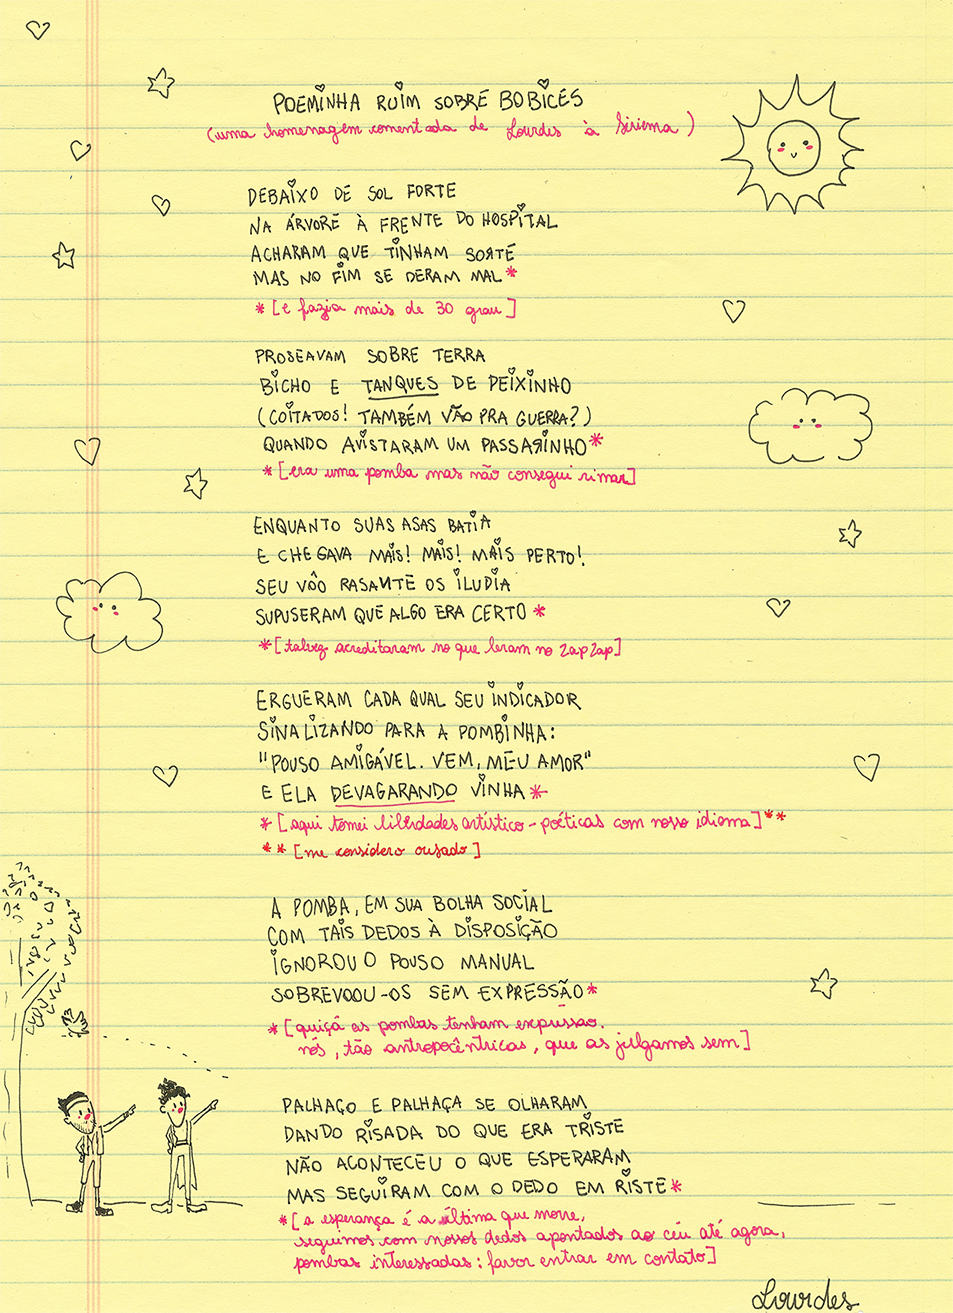 POEMINHA RUIM SOBRE BOBICES
(uma homenagem comentada de Lourdes à Siriema)
DEBAIXO DE SOL FORTE
NA ÁRVORE À FRENTE DO HOSPITAL
ACHARAM QUE TINHAM SORTE
MAS NO FIM SE DERAM MAL*
*[e fazia mais de 30 grau]
PROSEAVAM SOBRE TERRA
BICHO E TANQUES DE PEIXINHO
(COITADOS! TAMBÉM VÃO PRA GUERRA?)
QUANDO AVISTARAM UM PASSARINHO*
*[era uma pomba mas não consegui rimar]
ENQUANTO SUAS ASAS BATIA
E CHEGAVA MAIS! MAIS! MAIS PERTO!
SEU VÔO RASANTE OS ILUDIA
SUPUSERAM QUE ALGO ERA CERTO*
*[talvez acreditaram no que leram no zap zap]
ERGUERAM CADA QUAL SEU INDICADOR
SINALIZANDO PARA A POMBINHA:
"POUSO AMIGÁVEL. VEM, MEU AMOR"
E ELA DEVAGARANDO VINHA*
*[aqui tomei liberdades artístico-poéticas com nosso idioma]**
**[me considero ousado]
A POMBA, EM SUA BOLHA SOCIAL
COM TAIS DEDOS À DISPOSIÇÃO
IGNOROU O POUSO MANUAL
SOBREVOOU-OS SEM EXPRESSÃO*
*[quiçá as pombas tenham expressão.
nós, tão antropocêntricas, que as julgamos sem]
PALHAÇO E PALHAÇA SE OLHARAM
DANDO RISADA DO QUE ERA TRISTE
NÃO ACONTECEU O QUE ESPERARAM
MAS SEGUIRAM COM O DEDO EM RISTE*
*[a esperança é a última que morre,
seguimos com nossos dedos apontados ao céu até agora,
pombas interessadas: favor entrar em contato]
Lourdes